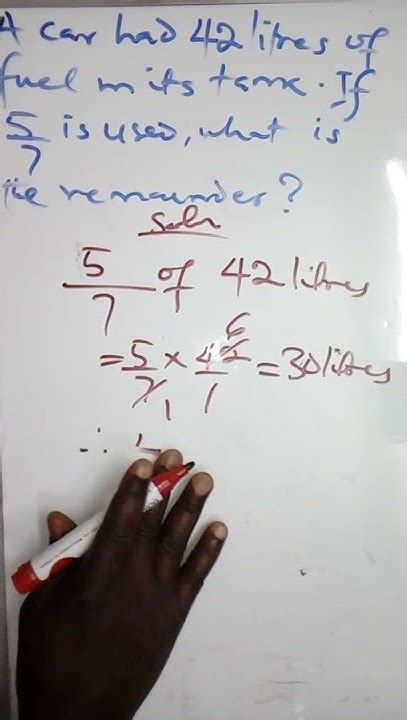 A car had 42 litres of
fuel in its tank. If
5/7 is used, what is
the remainder?
Soln
5/7 of 42 litres
= 5/7 1 × 42 6/1 = 30 litres
∴ 4